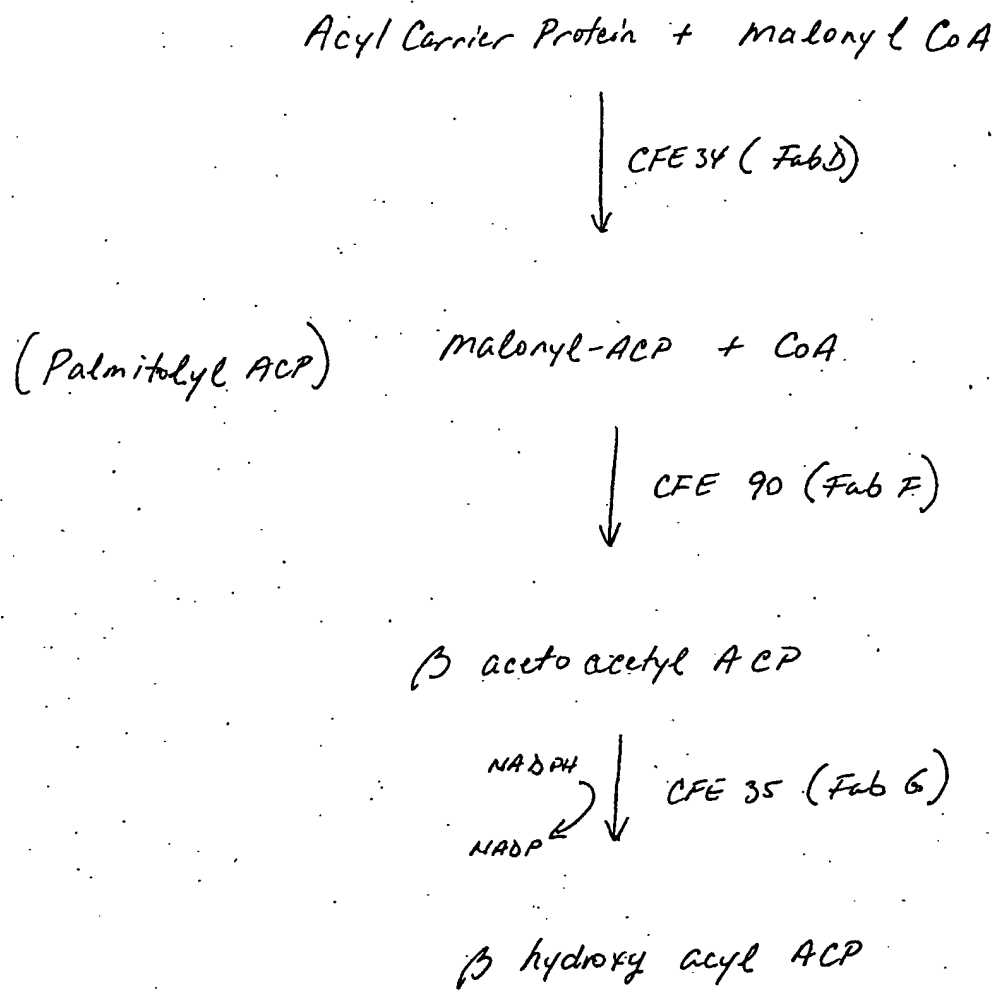 Acyl Carrier Protein + Malonyl CoA
CFE 34 (FabD)
(Palmitolyl ACP) Malonyl-ACP + CoA
CFE 90 (Fab F)
β aceto acetyl ACP
NADPH CFE 35 (Fab G)
NADP
β hydroxy acyl ACP